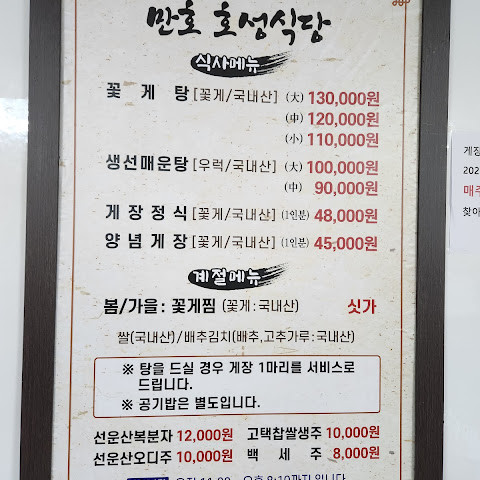 만호 호성식당
식사메뉴
꽃게탕 [꽃게/국내산] (大) 130,000원
(中) 120,000원
(小) 110,000원
생선매운탕 [우럭/국내산] (大) 100,000원
(中) 90,000원
게장정식 [꽃게/국내산] (1인분) 48,000원
양념게장 [꽃게/국내산] (1인분) 45,000원
계절메뉴
봄/가을 : 꽃게찜 (꽃게 : 국내산) 싯가
쌀(국내산)/배추김치(배추,고추가루:국내산)
※ 탕을 드실 경우 게장 1마리를 서비스로
드립니다.
※ 공기밥은 별도입니다.
선운산복분자 12,000원 고택찹쌀생주 10,000원
선운산오디주 10,000원 백세주 8,000원
게장
202
매주
찾아